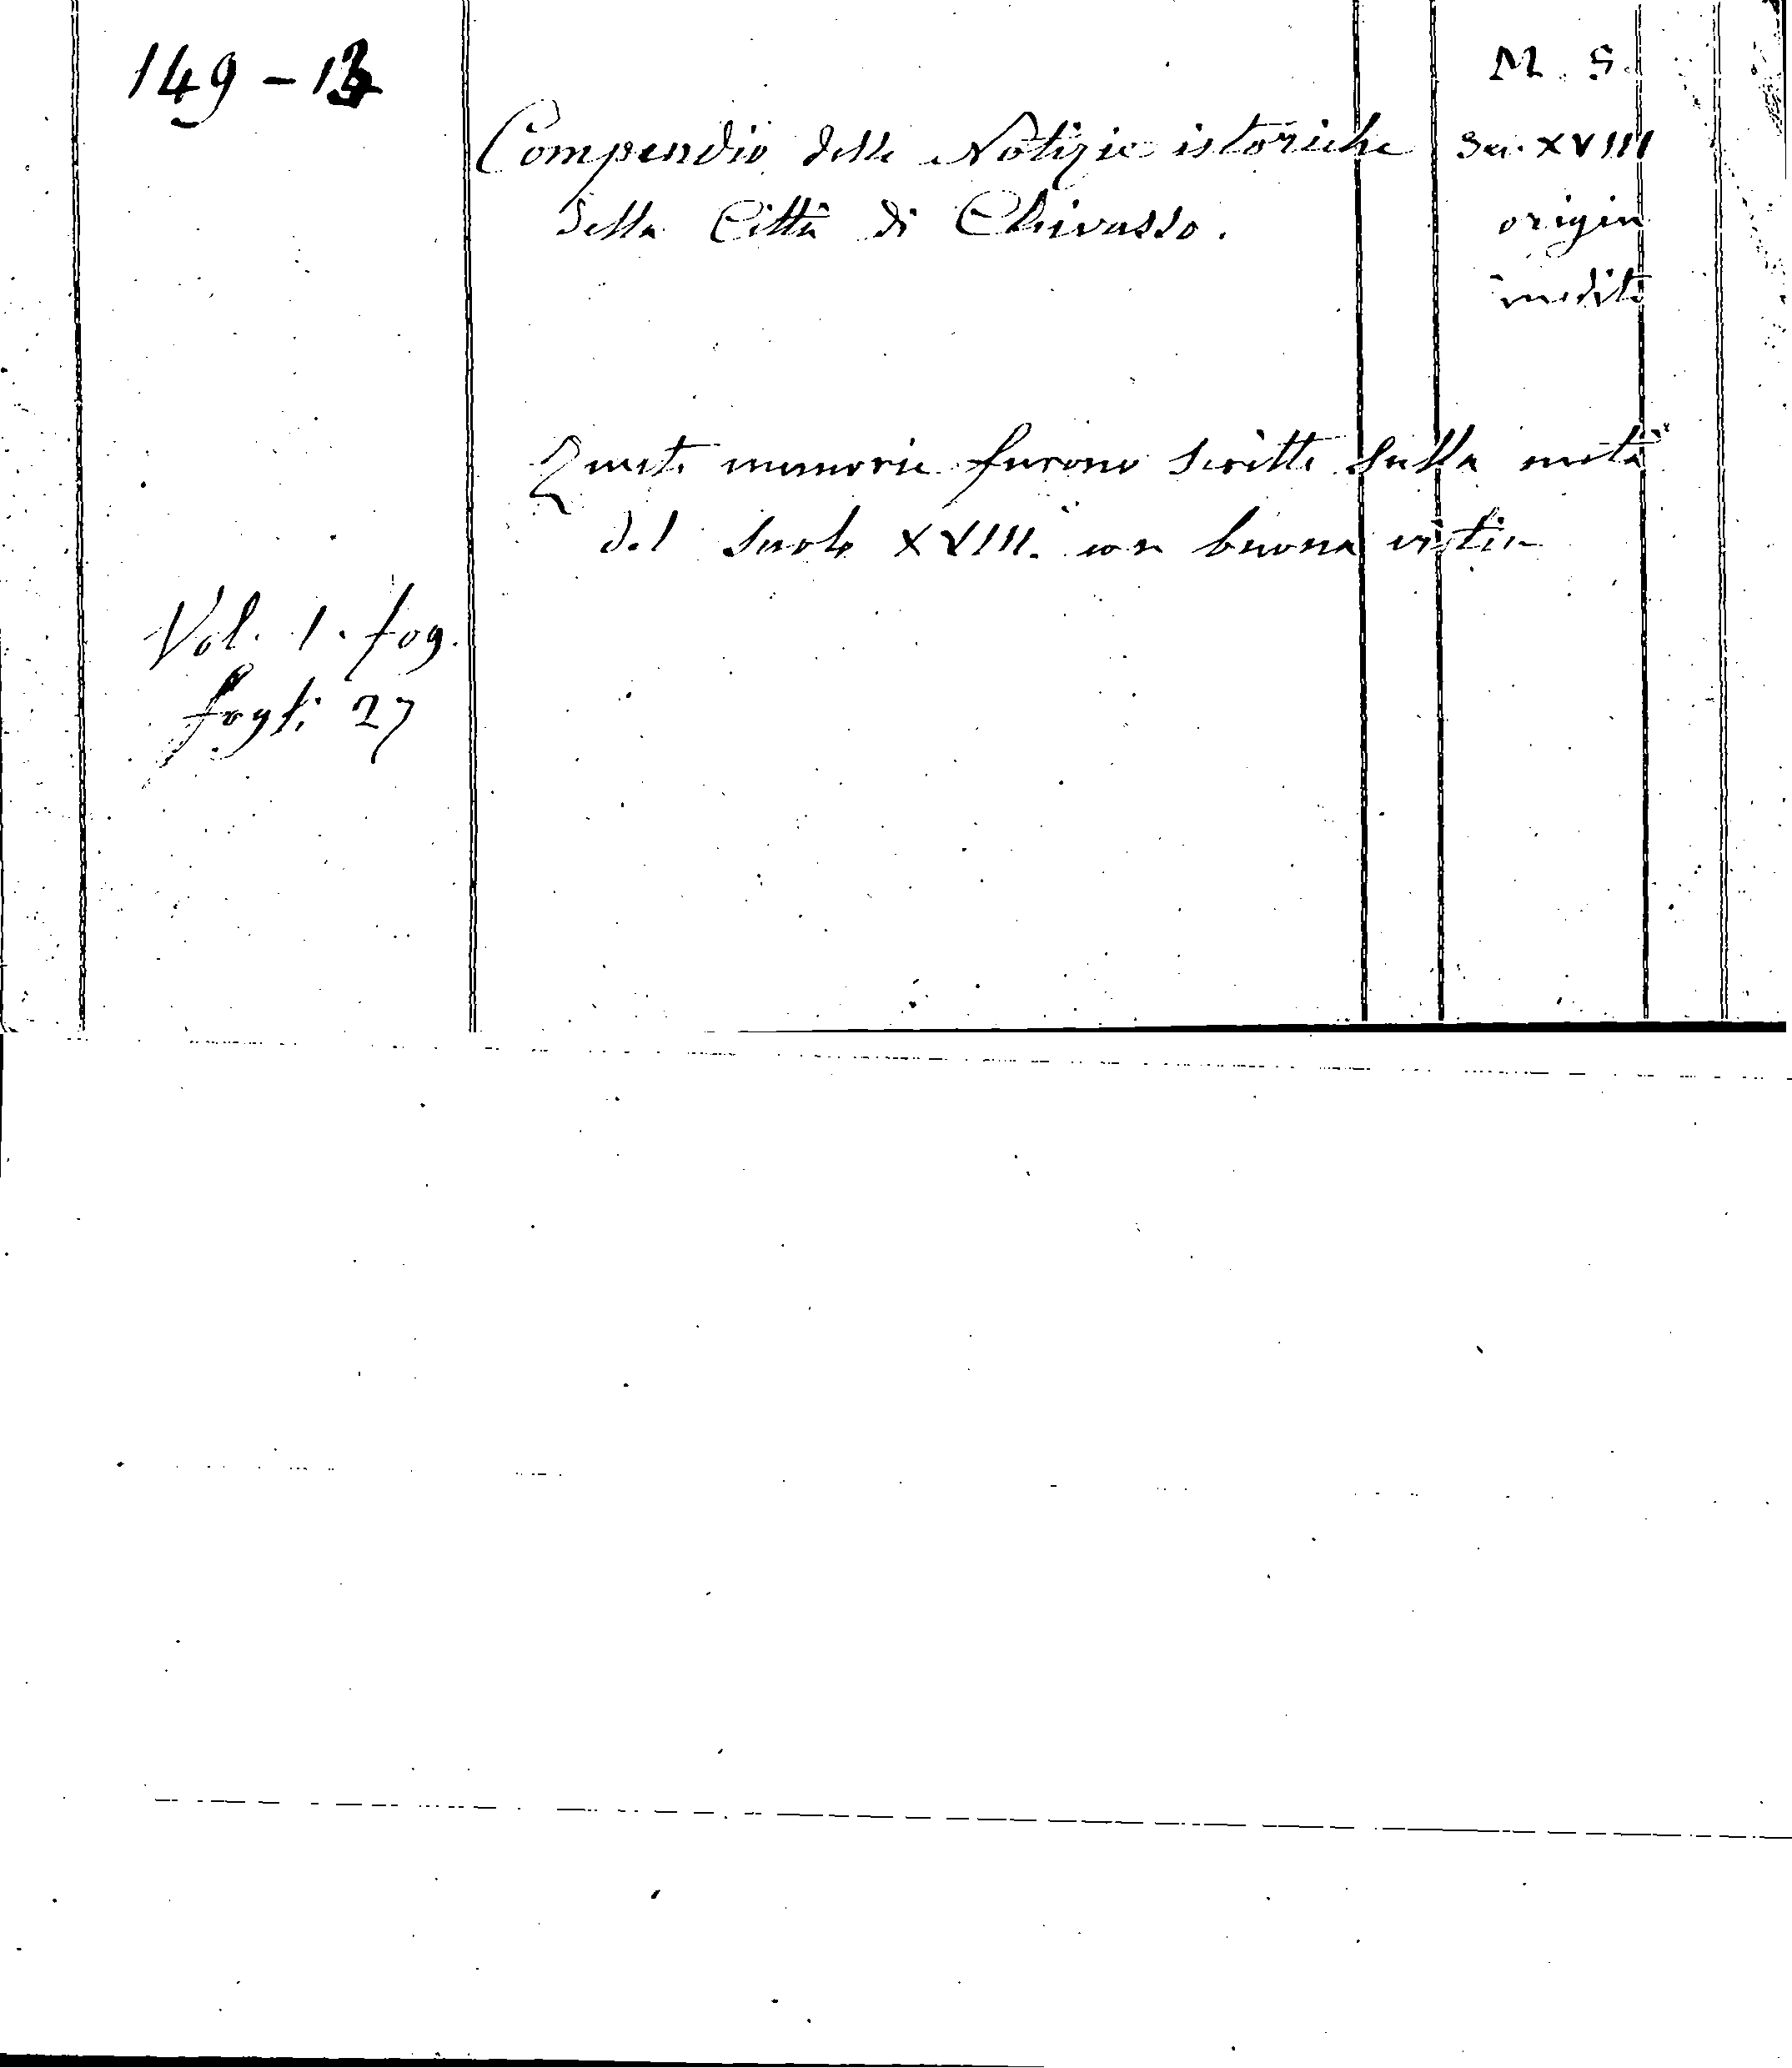 149 - 13
M. S.
Compendio delle Notizie istoriche
Sec. XVIII
della Città di Chivasso.
origin
inedito
Queste memorie furono scritte sulla metà
del Secolo XVIII. con buona
Vol. 1. fog.
fogli 27